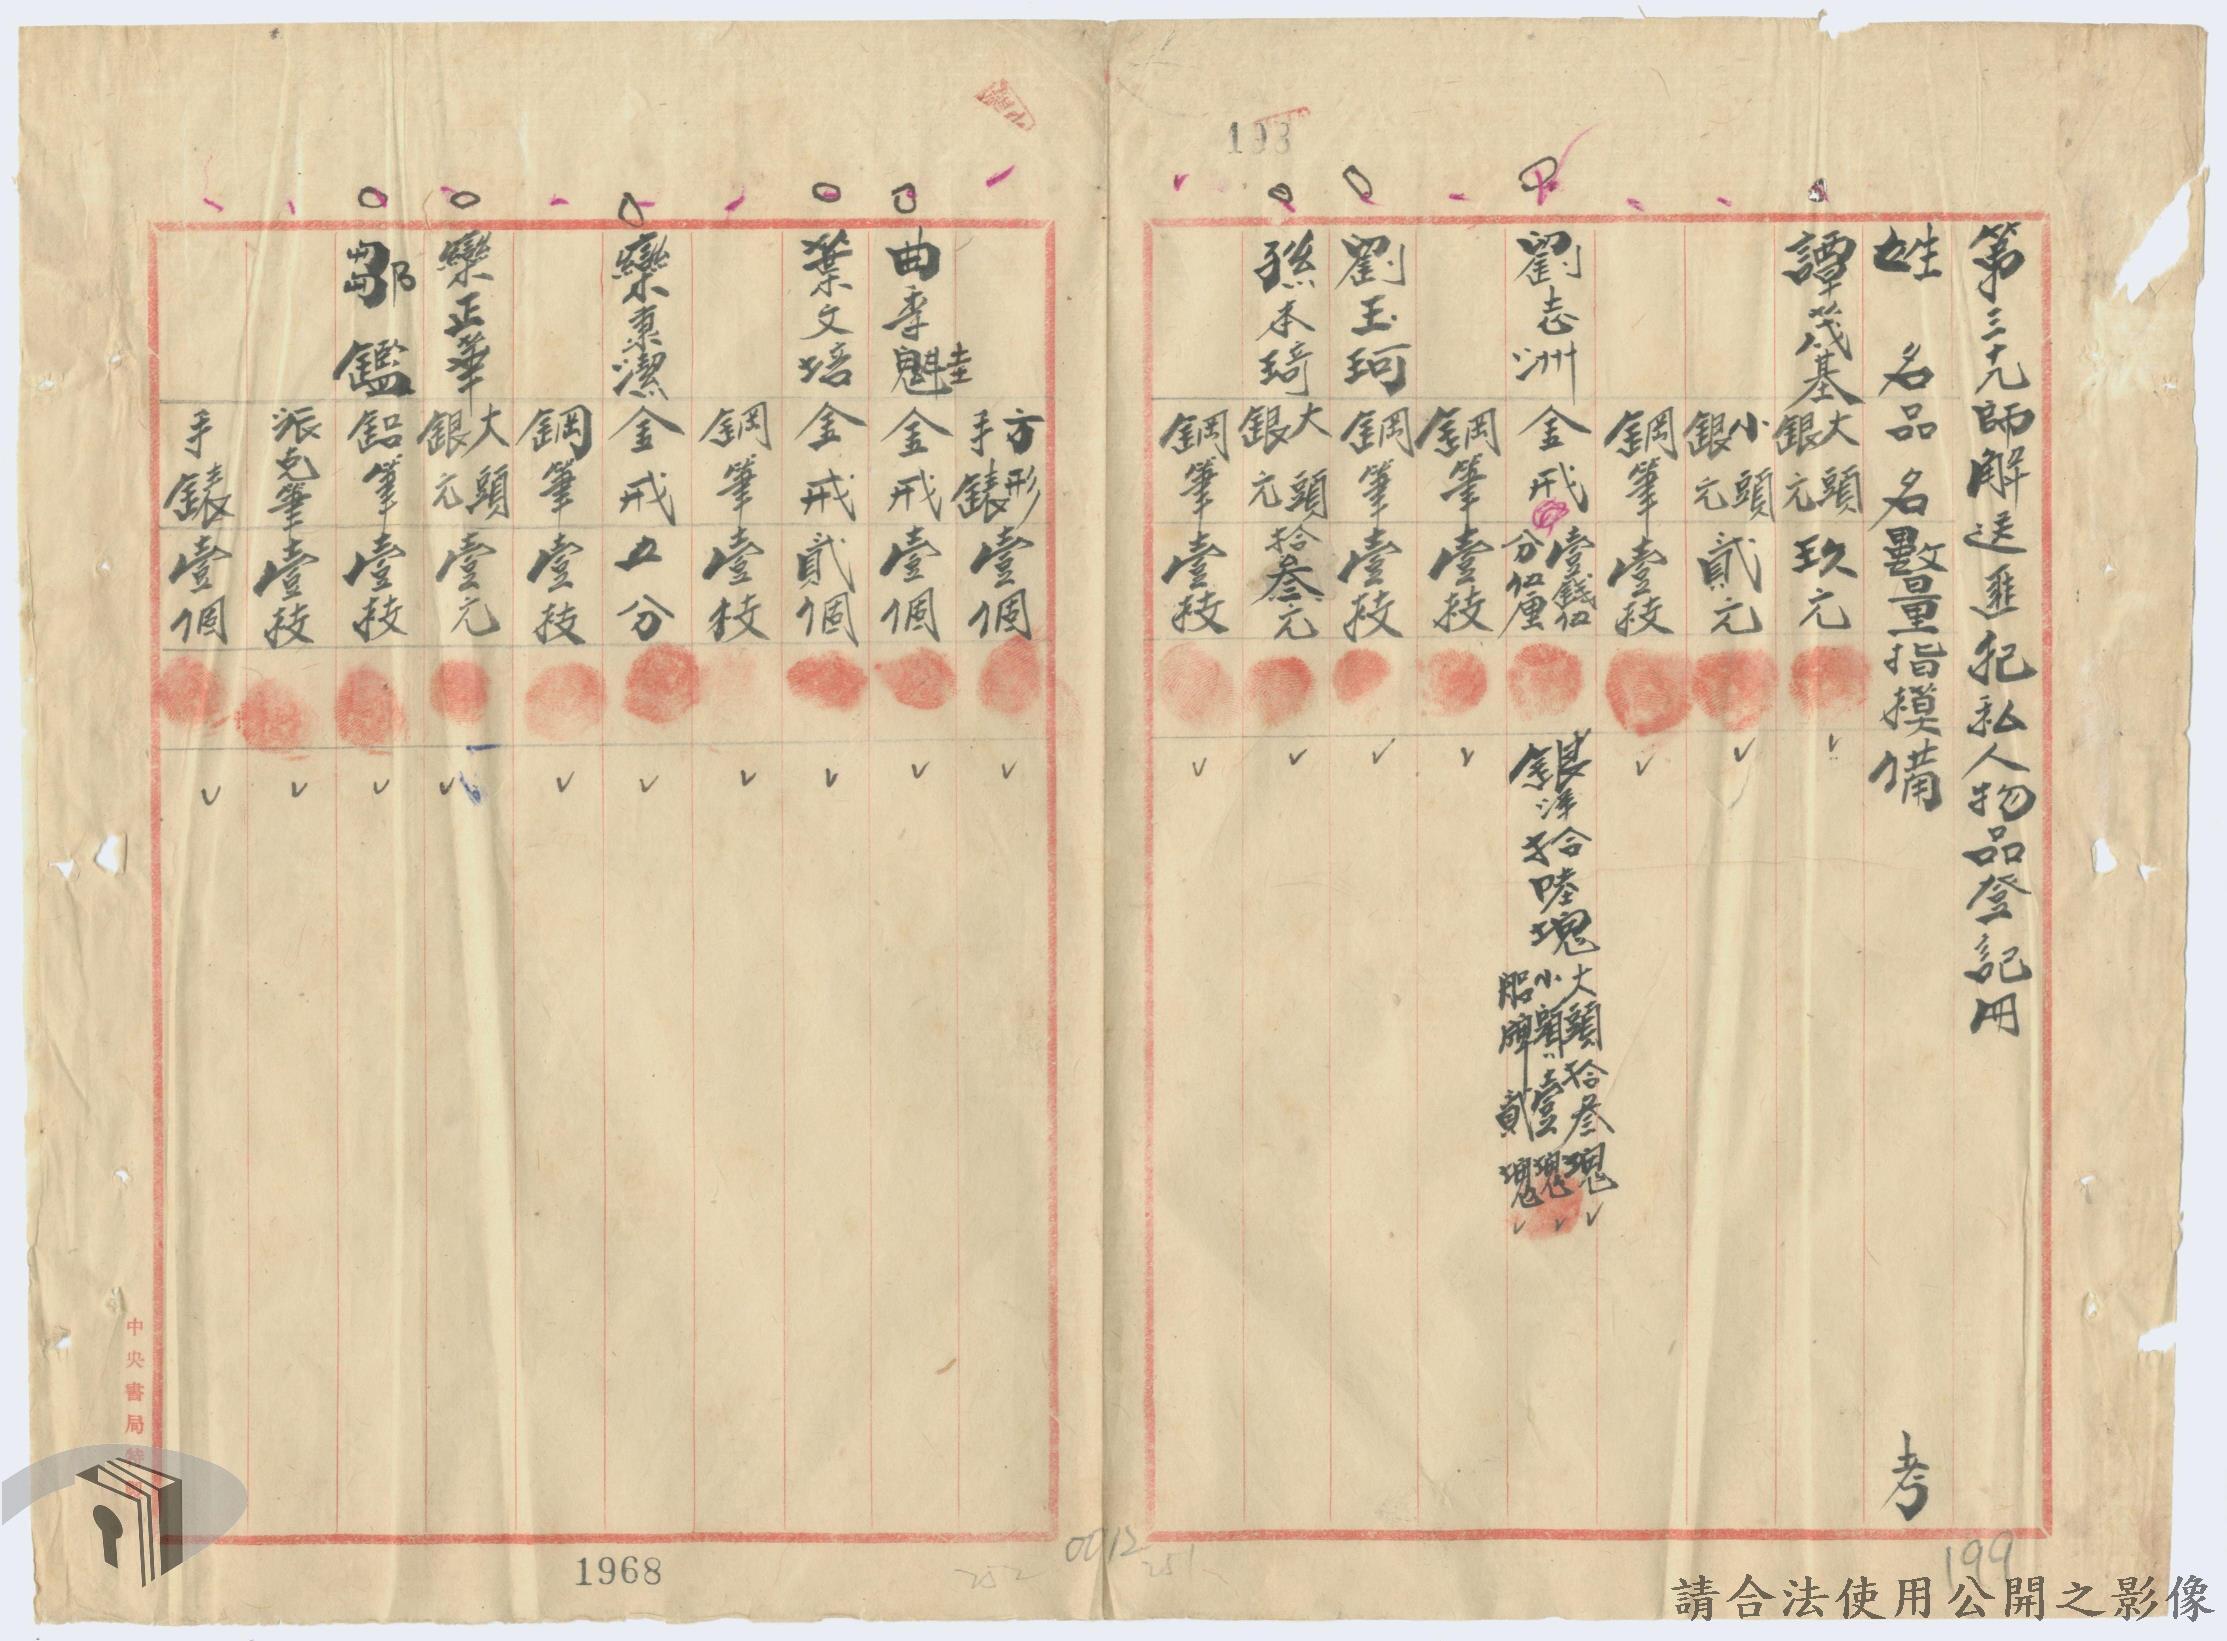 第三十九師解送匪犯私人物品登記冊
姓名 品名 數量 指摸 備考
譚茂基 大頭銀元 玖元
小頭銀元 貳元
鋼筆 壹枝
劉志洲 金戒 壹錢伍分伍厘 銀洋拾陸塊 大頭拾叁塊 小頭壹塊 船牌貳塊
鋼筆 壹枝
劉玉珂 鋼筆 壹枝
孫本琦 大頭銀元 拾叁元
鋼筆 壹枝
方形手錶 壹個
曲季魁 圭 金戒 壹個
葉文培 金戒 貳個
鋼筆 壹枝
欒東潔 金戒 五分
鋼筆 壹枝
欒正華 大頭銀元 壹元
鄒鑑 鉛筆 壹枝
派克筆 壹枝
手錶 壹個
中央書局特製
193
1968
252
0012
251
199
請合法使用公開之影像